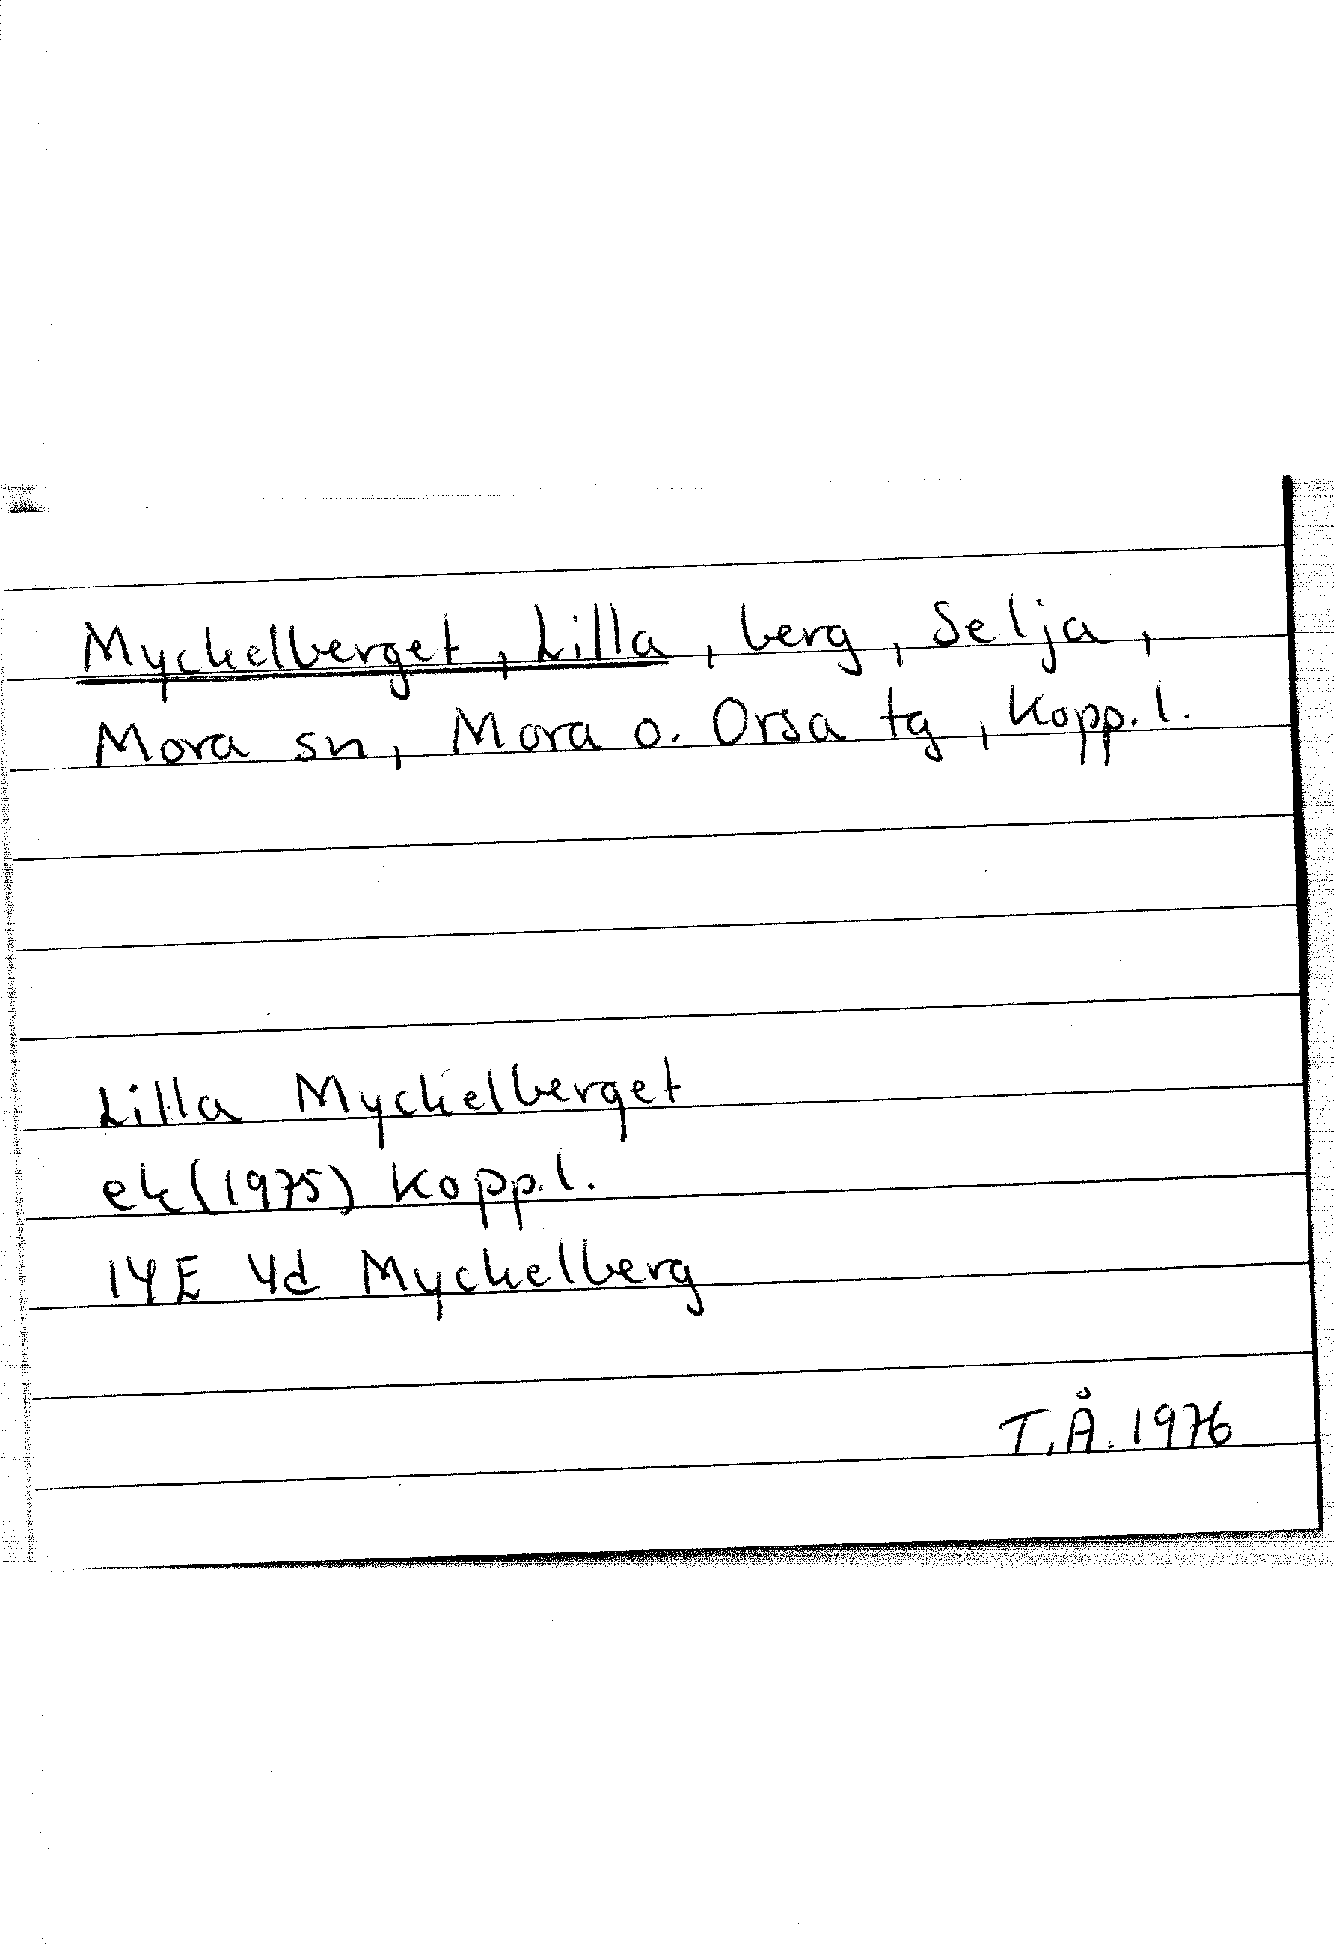 Myckelberget, Lilla, berg, Selja,
Mora sn, Mora o. Orsa tg, Kopp. l.
Lilla Myckelberget
ek(1975) Kopp. l.
14E 4d Myckelberg
T.Å. 1976